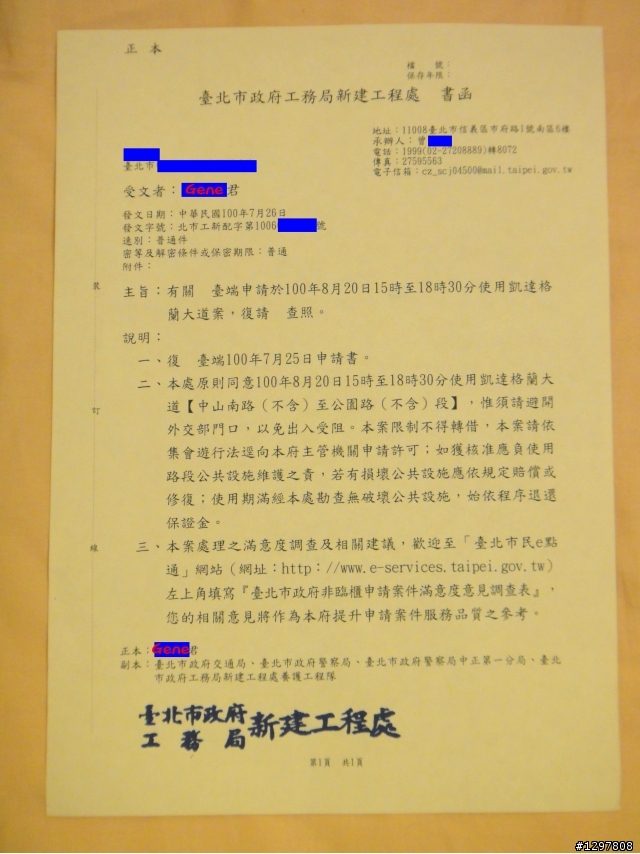 正 本
檔 號：
保存年限：
臺北市政府工務局新建工程處 書函
地址：11008臺北市信義區市府路1號南區5樓
承辦人：曾
電話：1999(02-27208889)轉8072
傳真：27595563
電子信箱：cz_scj04500@mail.taipei.gov.tw
臺北市
受文者：Gene君
發文日期：中華民國100年7月26日
發文字號：北市工新配字第1006 號
速別：普通件
密等及解密條件或保密期限：普通
附件：
裝
主旨：有關 臺端申請於100年8月20日15時至18時30分使用凱達格
蘭大道案，復請 查照。
說明：
一、復 臺端100年7月25日申請書。
二、本處原則同意100年8月20日15時至18時30分使用凱達格蘭大
道【中山南路（不含）至公園路（不含）段】，惟須請避開
訂
外交部門口，以免出入受阻。本案限制不得轉借，本案請依
集會遊行法逕向本府主管機關申請許可；如獲核准應負使用
路段公共設施維護之責，若有損壞公共設施應依規定賠償或
修復；使用期滿經本處勘查無破壞公共設施，始依程序退還
保證金。
線
三、本案處理之滿意度調查及相關建議，歡迎至「臺北市民e點
通」網站（網址：http：//www.e-services.taipei.gov.tw）
左上角填寫『臺北市政府非臨櫃申請案件滿意度意見調查表』，
您的相關意見將作為本府提升申請案件服務品質之參考。
正本：Gene君
副本：臺北市政府交通局、臺北市政府警察局、臺北市政府警察局中正第一分局、臺北
市政府工務局新建工程處養護工程隊
臺北市政府
工務局
新建工程處
第1頁 共1頁
#1297808